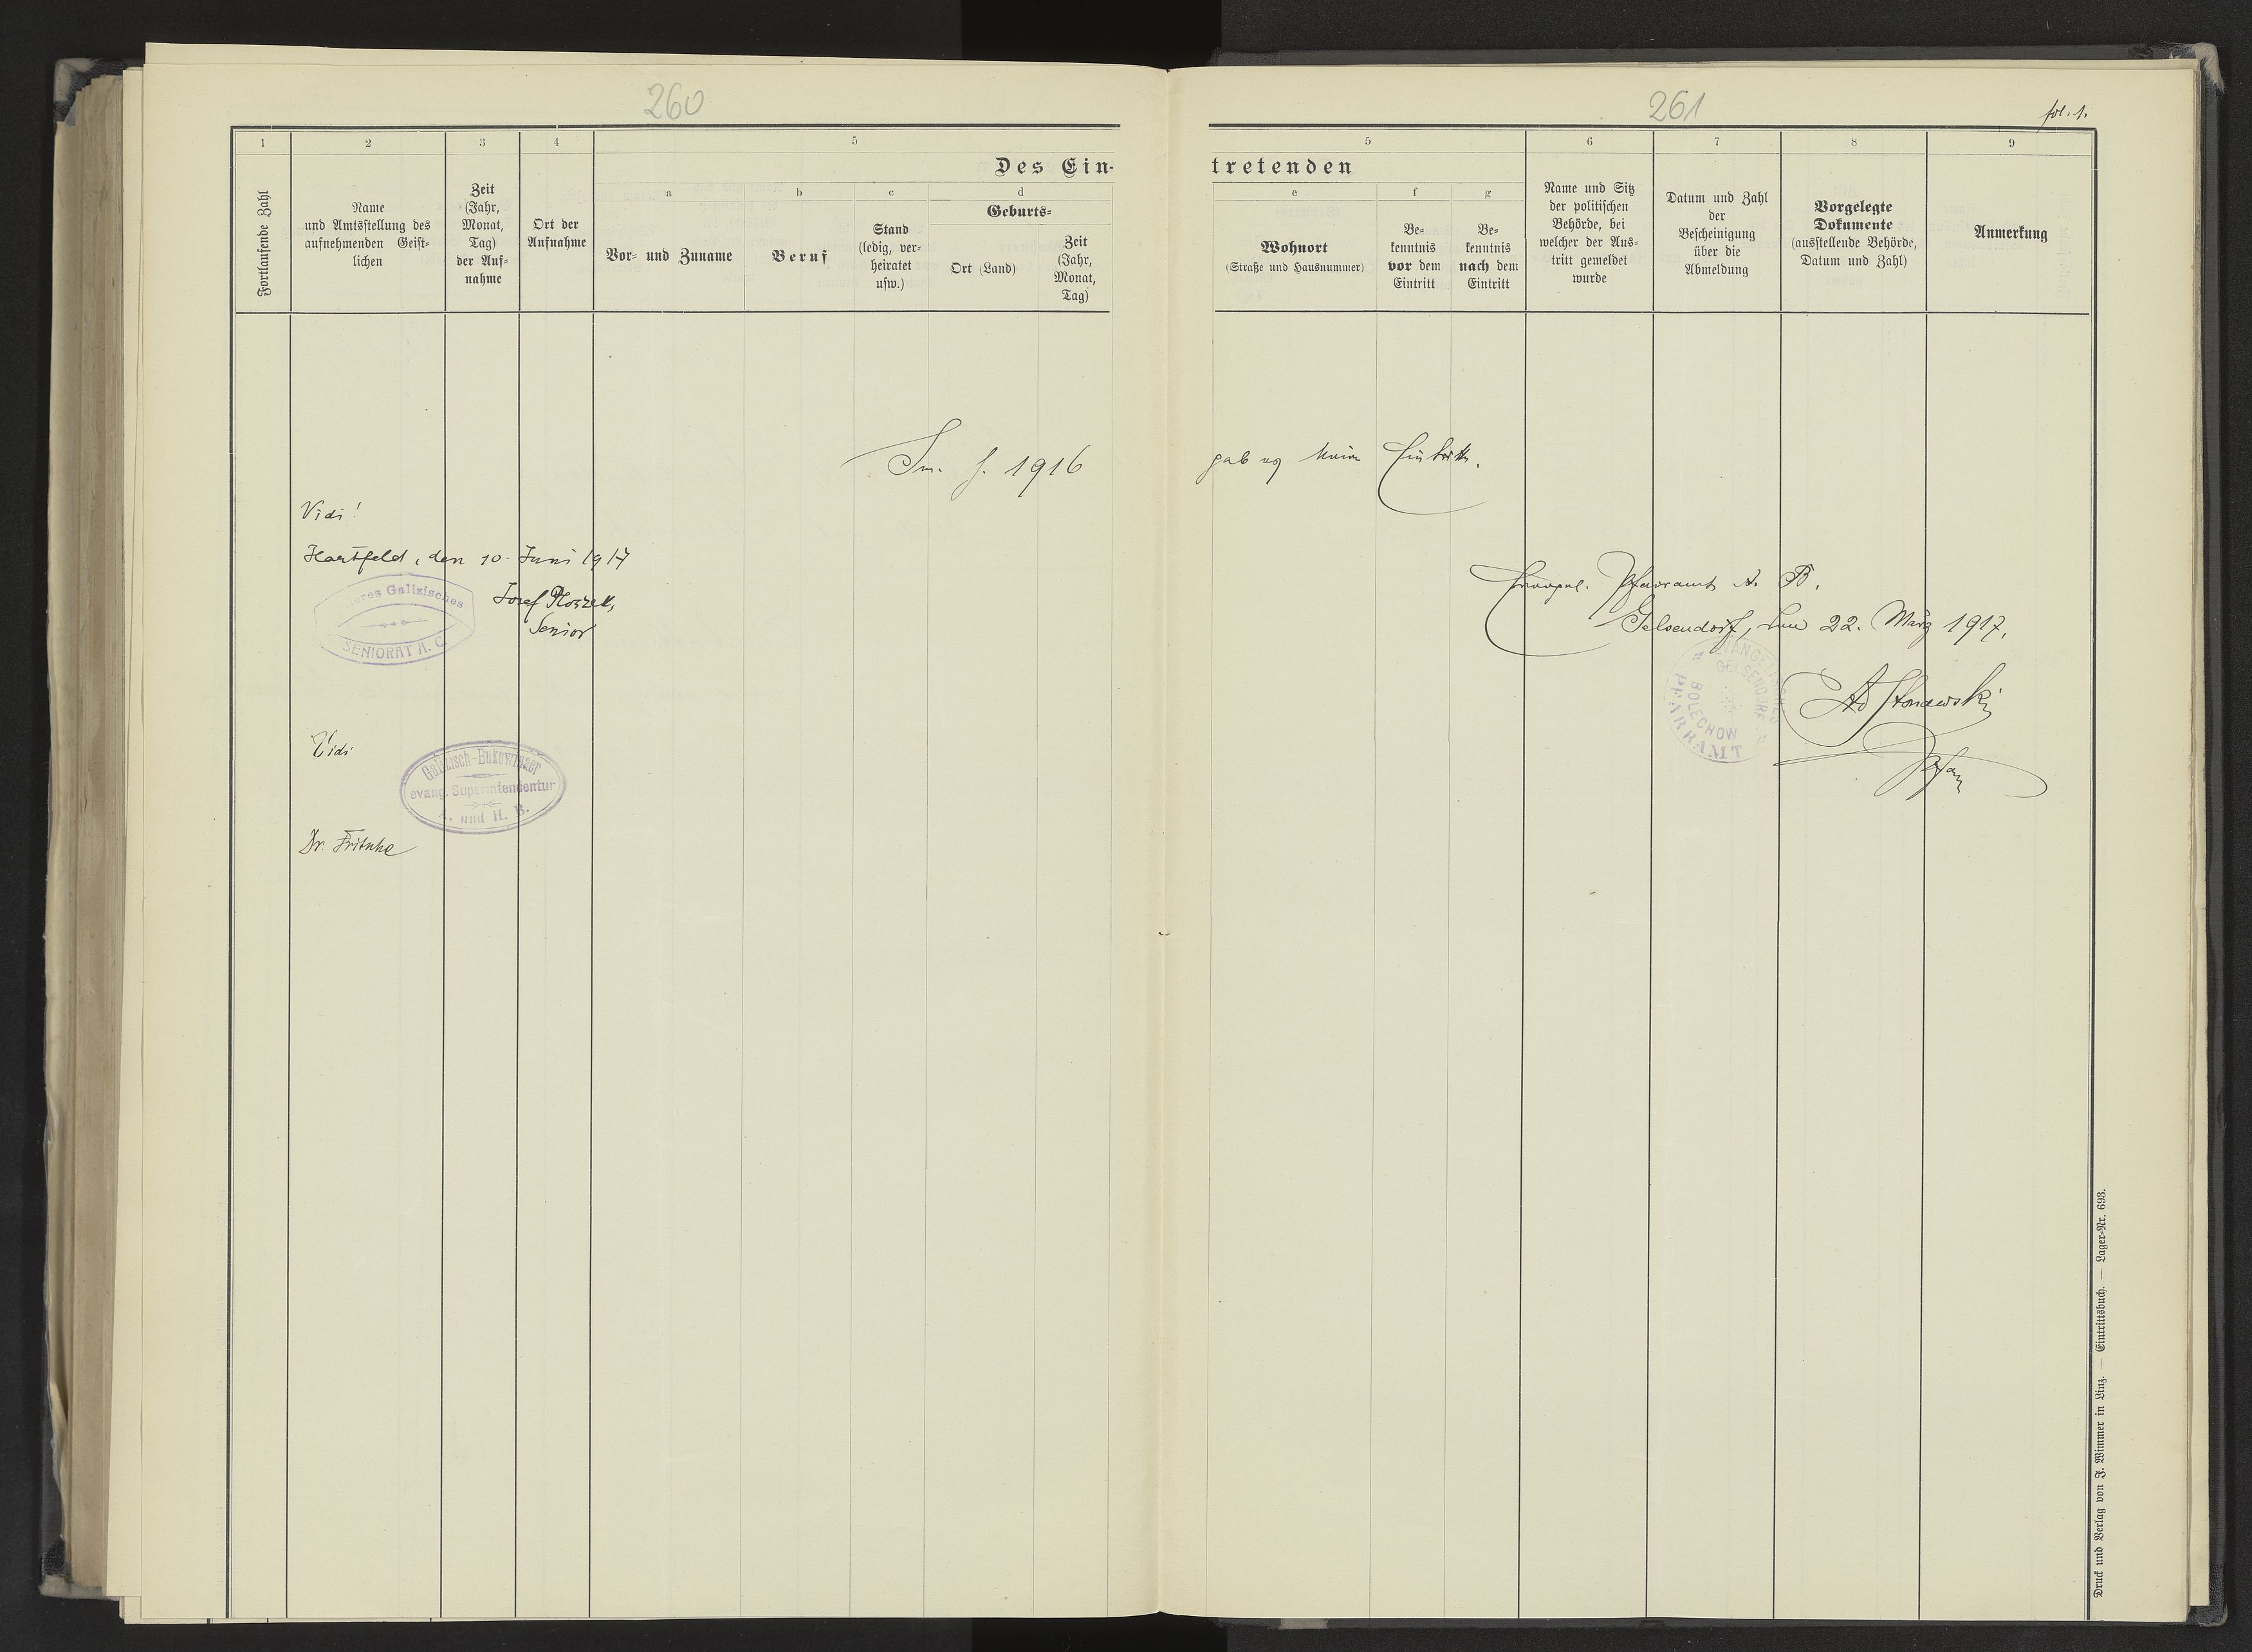 260
1
2
3
4
5
Des Ein-
a
b
c
d
Fortlaufende Zahl
Name
und Amtsstellung des
aufnehmenden Geist-
lichen
Zeit
(Jahr,
Monat,
Tag)
der Auf-
nahme
Ort der
Aufnahme
Vor- und Zuname
Beruf
Stand
(ledig, ver-
heiratet
usw.)
Geburts-
Ort (Land)
Zeit
(Jahr,
Monat,
Tag)
Im J. 1916
Vidi!
Hartfeld, den 10. Juni 1917
Galizisches
SENIORAT A. C.
Josef
Senior
Vidi
Galizisch-Bukowinaer
evang. Superintendentur
A. und H. B.
Dr. Fritsche
261
fol. 1.
5
6
7
8
9
tretenden
e
f
g
Wohnort
(Straße und Hausnummer)
Be-
kenntnis
vor dem
Eintritt
Be-
kenntnis
nach dem
Eintritt
Name und Sitz
der politischen
Behörde, bei
welcher der Aus-
tritt gemeldet
wurde
Datum und Zahl
der
Bescheinigung
über die
Abmeldung
Vorgelegte
Dokumente
(ausstellende Behörde,
Datum und Zahl)
Anmerkung
gab es keine Eintritte.
Evangel. Pfarramt A. B.
Gelsendorf, den 22. März 1917.
EVANGELISCHES
PFARRAMT
GELSENDORF
BOLECHOW
Pfarr
Druck und Verlag von J. Wimmer in Linz. — Eintrittsbuch. — Lager-Nr. 693.